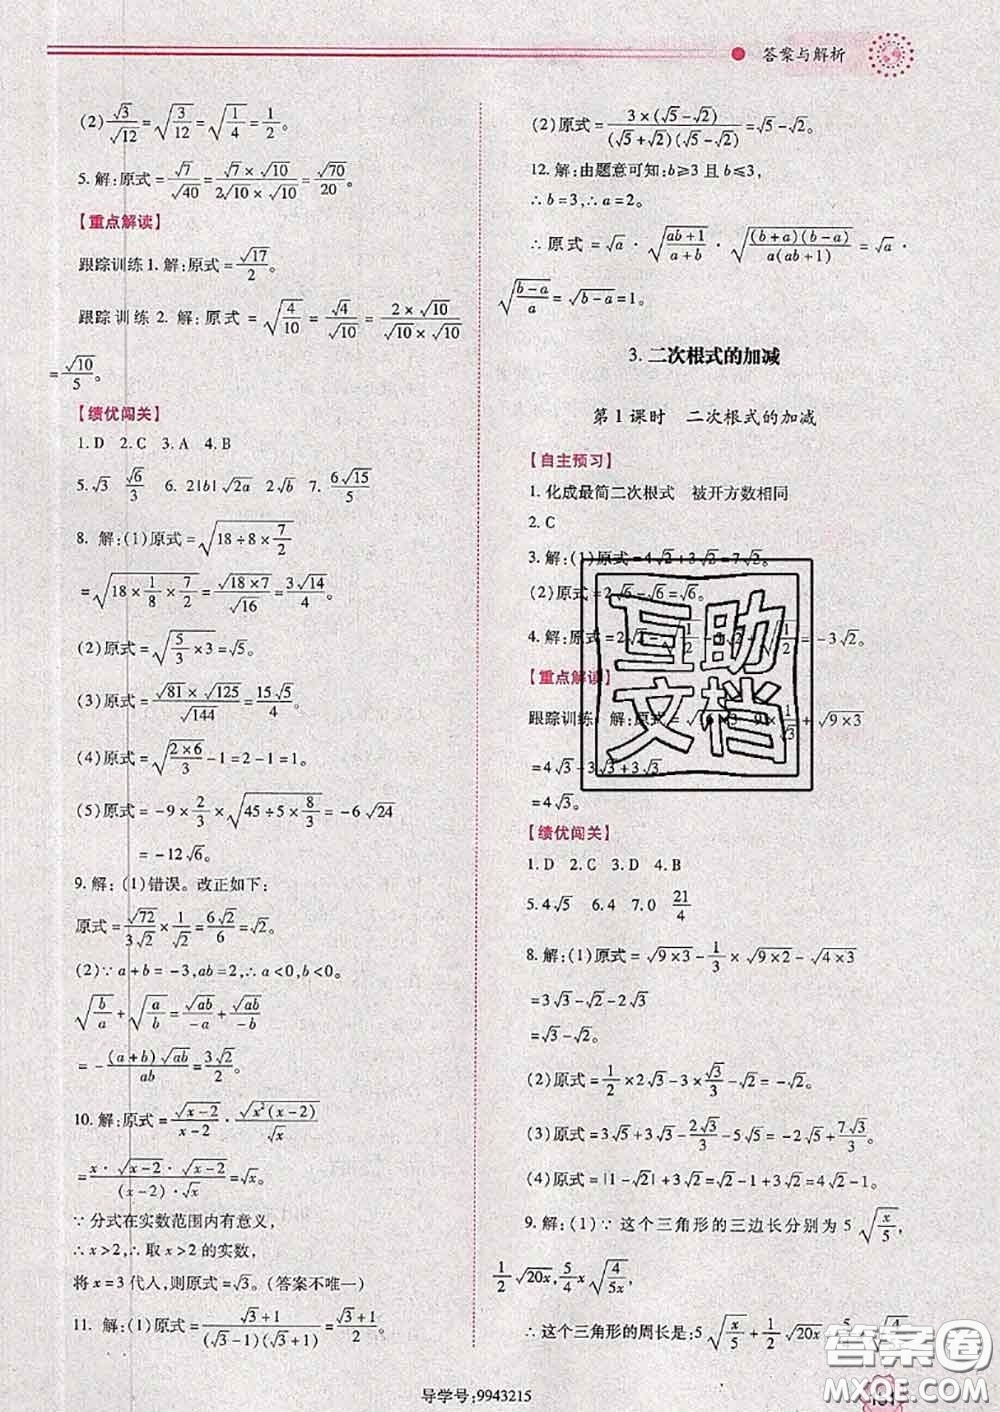 答案与解析
(2)√3/√12=√(3/12)=√(1/4)=1/2。
5. 解:原式=√7/√40=(√7×√10)/(2√10×√10)=√70/20。
【重点解读】
跟踪训练1. 解:原式=√17/2。
跟踪训练2. 解:原式=√(4/10)=√4/√10=(2×√10)/(√10×√10)
=√10/5。
【绩优闯关】
1. D 2. C 3. A 4. B
5. √3 √6/3 6. 2|b|√2a 2√b 7. 6√15/5
8. 解:(1)原式=√(18÷8×7/2)
=√(18×1/8×7/2)=√(18×7)/√16=3√14/4。
(2)原式=√(5/3×3)=√5。
(3)原式=(√81×√125)/√144=15√5/4。
(4)原式=√((2×6)/3)-1=2-1=1。
(5)原式=-9×2/3×√(45÷5×8/3)=-6√24
=-12√6。
9. 解:(1)错误。改正如下:
原式=√72/3√2×1/√2=6√2/6=√2。
(2)∵a+b=-3,ab=2,∴a<0,b<0。
√(b/a)+√(a/b)=√ab/-a+√ab/-b
=-(a+b)√ab/ab=3√2/2。
10. 解:原式=√(x-2)/(x-2)·√(x²(x-2))/√x
=(x·√(x-2)·√(x-2))/((x-2)·√x)=√x。
∵分式在实数范围内有意义,
∴x>2,∴取x>2的实数,
将x=3代人,则原式=√3。(答案不唯一)
11. 解:(1)原式=(√3+1)/((√3-1)(√3+1))=(√3+1)/2。
(2)原式=3×(√5-√2)/((√5+√2)(√5-√2))=√5-√2。
12. 解:由题意可知:b≥3且b≤3,
∴b=3,∴a=2。
∴原式=√a·√((ab+1)/(a+b))·√((b+a)(b-a)/(a(ab+1)))=√a·
√((b-a)/a)=√(b-a)=1。
3. 二次根式的加减
第1课时 二次根式的加减
【自主预习】
1. 化成最简二次根式 被开方数相同
2. C
3. 解:(1)原式=4√2+3√2=7√2。
(2)原式=2√6-√6=√6。
4. 解:原式=2√2-=-3√2。
【重点解读】
跟踪训练 解:原式=+√(9×3)
=4√3-3√3+3√3
=4√3。
【绩优闯关】
1. D 2. C 3. D 4. B
5. 4√5 6. 4 7. 0 21/4
8. 解:(1)原式=√(9×3)-1/3×√(9×2)-√(4×3)
=3√3-√2-2√3
=√3-√2。
(2)原式=1/2×2√3-3×√3/3=√3-√3=0。
(3)原式=3√5+3√3-2√3/3-5√5=-2√5+7√3/3。
(4)原式=|1-√2|+√2=√2-1+√2=2√2-1。
9. 解:(1)∵这个三角形的三边长分别为5√(x/5),
1/2√20x,5/4x√(4/5x),
∴这个三角形的周长是:5√(x/5)+1/2√20x
导学号:9943215
互助
文档
答案圈
MXQE.COM